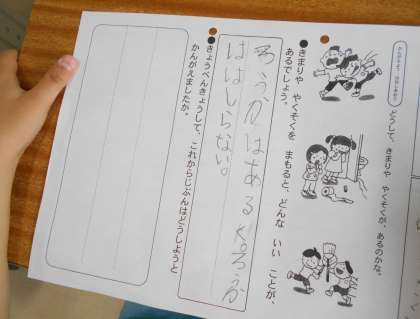 どうして、きまりや やくそくが、あるのかな。
●きまりや やくそくを まもると、どんな いい ことが、
あるでしょう。
ろうかはあるく。ろうか
ははしらない。
●きょうべんきょうして、これからじぶんはどうしようと
かんがえましたか。